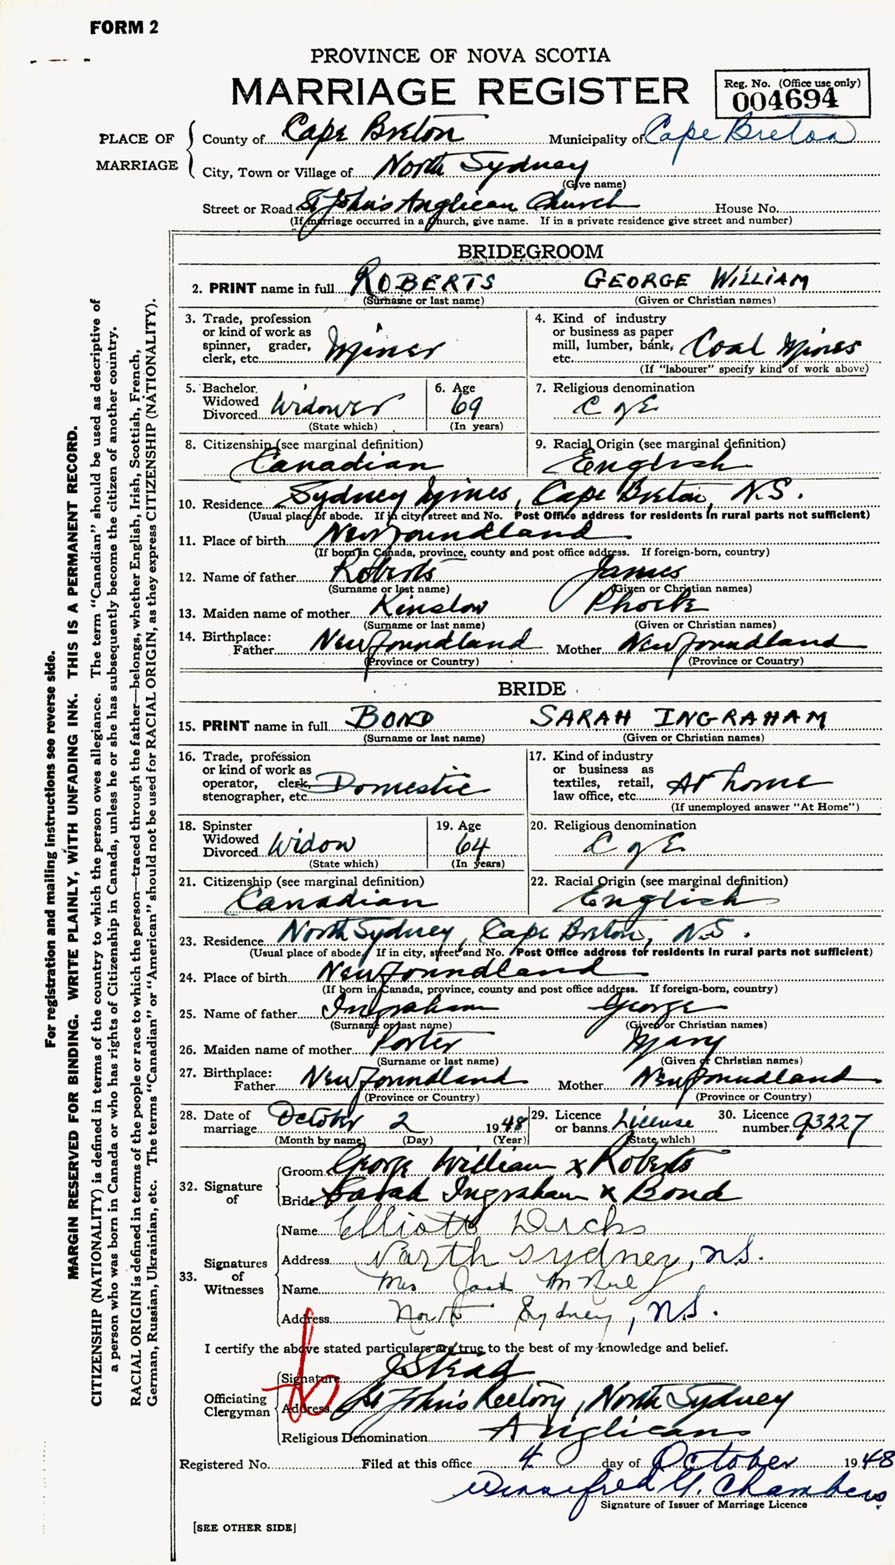 FORM 2
PROVINCE OF NOVA SCOTIA
MARRIAGE REGISTER
Reg. No. (Office use only)
004694
PLACE OF MARRIAGE
County of Cape Breton Municipality of Cape Breton
City, Town or Village of North Sydney
(Give name)
Street or Road St John's Anglican Church House No.
(If marriage occurred in a church, give name. If in a private residence give street and number)
BRIDEGROOM
2. PRINT name in full ROBERTS GEORGE WILLIAM
(Surname or last name) (Given or Christian names)
3. Trade, profession or kind of work as spinner, grader, clerk, etc. Miner
4. Kind of industry or business as paper mill, lumber, bank, etc. Coal Mines
(If "labourer" specify kind of work above)
5. Bachelor Widowed Divorced Widower
(State which)
6. Age 69
(In years)
7. Religious denomination
C of E
8. Citizenship (see marginal definition)
Canadian
9. Racial Origin (see marginal definition)
English
10. Residence Sydney Mines, Cape Breton, N.S.
(Usual place of abode. If in city, street and No. Post Office address for residents in rural parts not sufficient)
11. Place of birth Newfoundland
(If born in Canada, province, county and post office address. If foreign-born, country)
12. Name of father Roberts James
(Surname or last name) (Given or Christian names)
13. Maiden name of mother Kinslow Phoebe
(Surname or last name) (Given or Christian names)
14. Birthplace: Father Newfoundland Mother Newfoundland
(Province or Country) (Province or Country)
BRIDE
15. PRINT name in full BOND SARAH INGRAHAM
(Surname or last name) (Given or Christian names)
16. Trade, profession or kind of work as operator, clerk, stenographer, etc. Domestic
17. Kind of industry or business as textiles, retail, law office, etc. At home
(If unemployed answer "At Home")
18. Spinster Widowed Divorced Widow
(State which)
19. Age 64
(In years)
20. Religious denomination
C of E
21. Citizenship (see marginal definition)
Canadian
22. Racial Origin (see marginal definition)
English
23. Residence North Sydney, Cape Breton, N.S.
(Usual place of abode. If in city, street and No. Post Office address for residents in rural parts not sufficient)
24. Place of birth Newfoundland
(If born in Canada, province, county and post office address. If foreign-born, country)
25. Name of father Ingraham George
(Surname or last name) (Given or Christian names)
26. Maiden name of mother Porter Mary
(Surname or last name) (Given or Christian names)
27. Birthplace: Father Newfoundland Mother Newfoundland
(Province or Country) (Province or Country)
28. Date of marriage October 2 1948
(Month by name) (Day) (Year)
29. Licence or banns License
(State which)
30. Licence number 93227
32. Signature of
Groom George William x Roberts
Bride Sarah Ingraham x Bond
33. Signatures of Witnesses
Name Elliott Dicks
Address North Sydney, N.S.
Name Mrs Jack McNeil
Address North Sydney, N.S.
I certify the above stated particulars are true to the best of my knowledge and belief.
Officiating Clergyman
Signature J Stead
Address St John's Rectory, North Sydney
Religious Denomination Anglican
Registered No. Filed at this office 4 day of October 1948
Winnifred G. Chambers
Signature of Issuer of Marriage Licence
[SEE OTHER SIDE]
For registration and mailing instructions see reverse side.
MARGIN RESERVED FOR BINDING. WRITE PLAINLY, WITH UNFADING INK. THIS IS A PERMANENT RECORD.
CITIZENSHIP (NATIONALITY) is defined in terms of the country to which the person owes allegiance. The term "Canadian" should be used as descriptive of
a person who was born in Canada or who has rights of Citizenship in Canada, unless he or she has subsequently become the citizen of another country.
RACIAL ORIGIN is defined in terms of the people or race to which the person—traced through the father—belongs, whether English, Irish, Scottish, French,
German, Russian, Ukrainian, etc. The terms "Canadian" or "American" should not be used for RACIAL ORIGIN, as they express CITIZENSHIP (NATIONALITY).